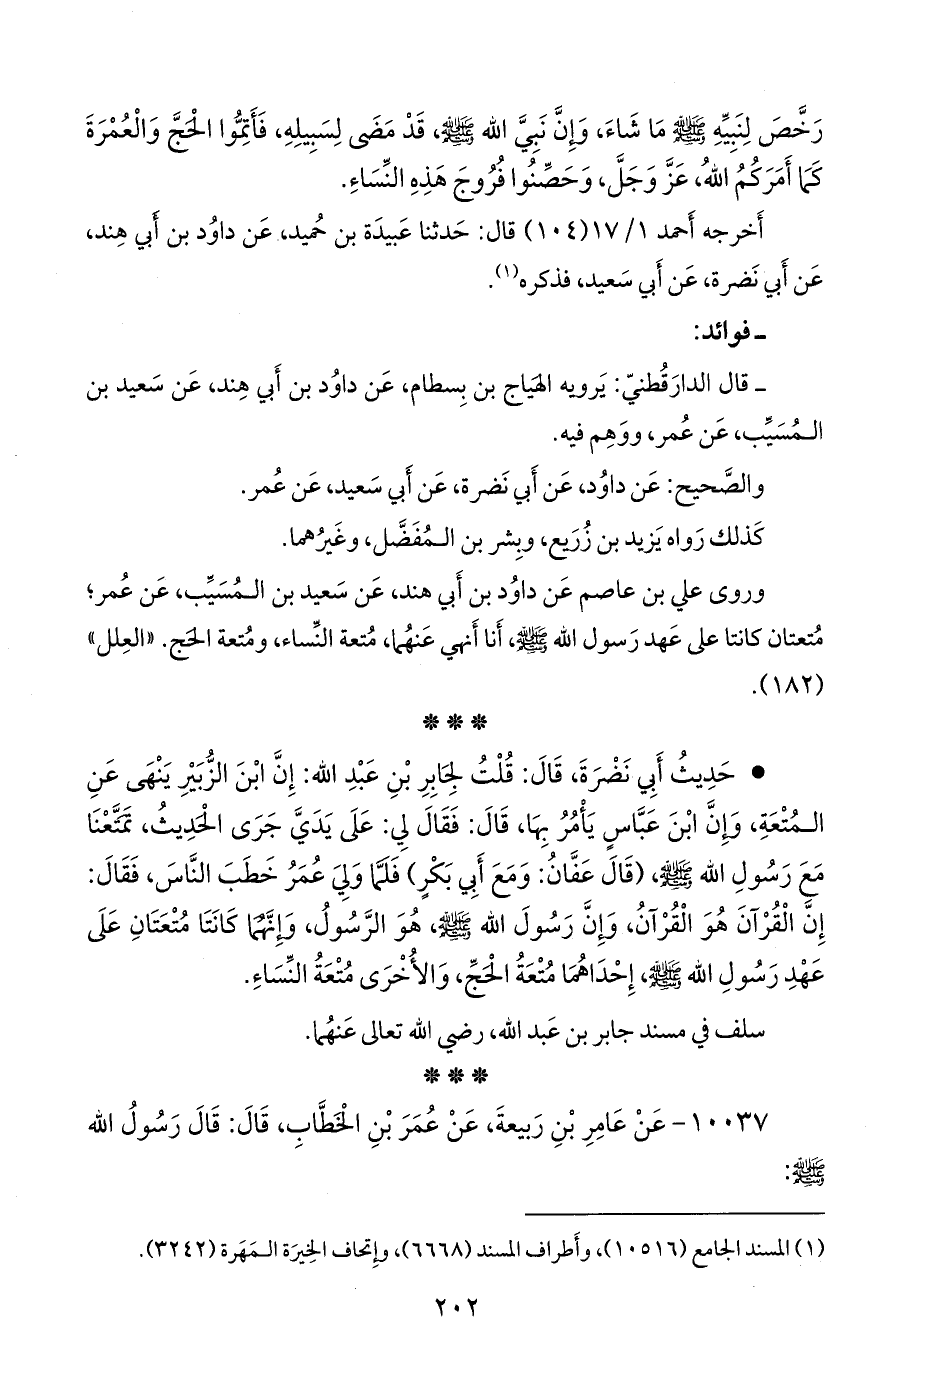 رَخَّصَ لِنَبِيِّهِ ﷺ مَا شَاءَ، وَإِنَّ نَبِيَّ الله ﷺ، قَدْ مَضَى لِسَبِيلِهِ، فَأَتِمُّوا الْحَجَّ وَالْعُمْرَةَ
كَمَا أَمَرَكُمُ اللهُ، عَزَّ وَجَلَّ، وَحَصِّنُوا فُرُوجَ هَذِهِ النِّسَاءِ.
أَخرجه أحمد ١/ ١٧ (١٠٤) قال: حَدثنا عَبيدَة بن حُميد، عَن داوُد بن أَبي هِند،
عَن أَبي نَضرة، عَن أَبي سَعيد، فذكره(١).
ـ فوائد:
ـ قال الدارَقُطنيّ: يَرويه الهَياج بن بِسطام، عَن داوُد بن أَبي هِند، عَن سَعيد بن
الـمُسَيِّب، عَن عُمر، ووَهِم فيه.
والصَّحيح: عَن داوُد، عَن أَبي نَضرة، عَن أَبي سَعيد، عَن عُمر.
كَذلك رَواه يَزيد بن زُرَيع، وبِشر بن الـمُفَضَّل، وغَيرُهما.
وروى علي بن عاصم عَن داوُد بن أَبي هند، عَن سَعيد بن الـمُسَيِّب، عَن عُمر؛
مُتعتان كانتا على عَهد رَسول الله ﷺ، أَنا أَنهي عَنهُما، مُتعة النِّساء، ومُتعة الحَج. «العِلل»
(١٨٢).
* * *
• حَدِيثُ أَبِي نَضْرَةَ، قَالَ: قُلْتُ لِجَابِرِ بْنِ عَبْدِ الله: إِنَّ ابْنَ الزُّبَيْرِ يَنْهَى عَنِ
الـمُتْعَةِ، وَإِنَّ ابْنَ عَبَّاسٍ يَأْمُرُ بِهَا، قَالَ: فَقَالَ لِي: عَلَى يَدَيَّ جَرَى الْحَدِيثُ، تَمَتَّعْنَا
مَعَ رَسُولِ الله ﷺ، (قَالَ عَفَّانُ: وَمَعَ أَبِي بَكْرٍ) فَلَمَّا وَلِيَ عُمَرُ خَطَبَ النَّاسَ، فَقَالَ:
إِنَّ الْقُرْآنَ هُوَ الْقُرْآنُ، وَإِنَّ رَسُولَ الله ﷺ، هُوَ الرَّسُولُ، وَإِنَّهُمَا كَانَتَا مُتْعَتَانِ عَلَى
عَهْدِ رَسُولِ الله ﷺ، إِحْدَاهُمَا مُتْعَةُ الْحَجِّ، وَالأُخْرَى مُتْعَةُ النِّسَاءِ.
سلف في مسند جابر بن عَبد الله، رضي الله تعالى عَنهُما.
* * *
١٠٠٣٧- عَنْ عَامِرِ بْنِ رَبِيعةَ، عَنْ عُمَرَ بْنِ الْخَطَّابِ، قَالَ: قَالَ رَسُولُ الله
ﷺ:
(١) المسند الجامع (١٠٥١٦)، وأَطراف المسند (٦٦٦٨)، وإِتحاف الخِيرَة الـمَهَرة (٣٢٤٢).
٢٠٢